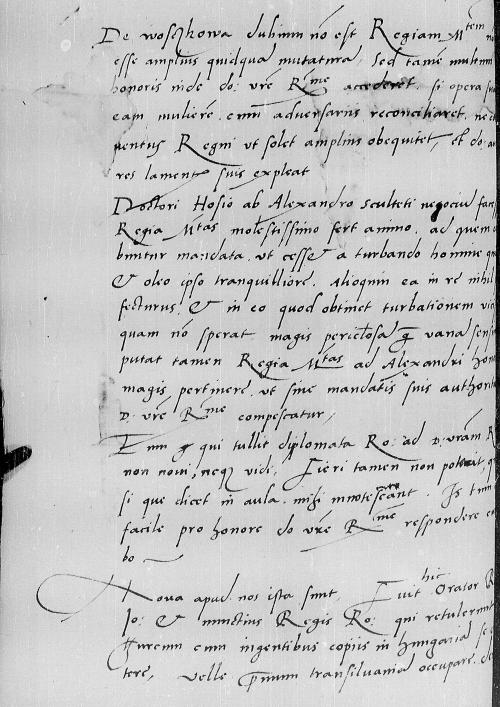 De wosczkowa dubium nō est Regiam Mtem
esse amplius quidquā mutaturā, Sed tamē multum
honoris inde do: vrē Rme accederet. si opera sua
eam mulierē cum adversariis reconciliaret. ne
Regni vt solet amplius obequitet, et do:
res lament suis expleat
Doctori Hosio ab Alexandro Sculteti negociū
Regia Mtas molestissimo fert animo. ad quem
buntur mandata, vt cesset a turbando homine
et oleo ipso tranquilliore. Alioquin ea in re nihil
fecturus, et in eo quod obtinet turbationem
quam nō sperat magis periclosā q vana
putat tamen Regia Mtas ad Alexandri
magis pertinere, vt sine mandatis suis authorita
D. vrē Rme compescatur,
Eum q qui tullit diplomata Ro: ad D. vrām R
non novi, neq vidi, Fieri tamen non poterit,
si que dicet in aula mihi innotescant. Is
facile pro honore do vrē Rme respondere
bo
Nova apud nos ista sunt, Fuit hic Orator R
Jo: et nuncius Regis Ro: qui retulerunt
Turcum cum ingentibus copiis in hungaria se
tere, velle primum transilvaniā occupare,